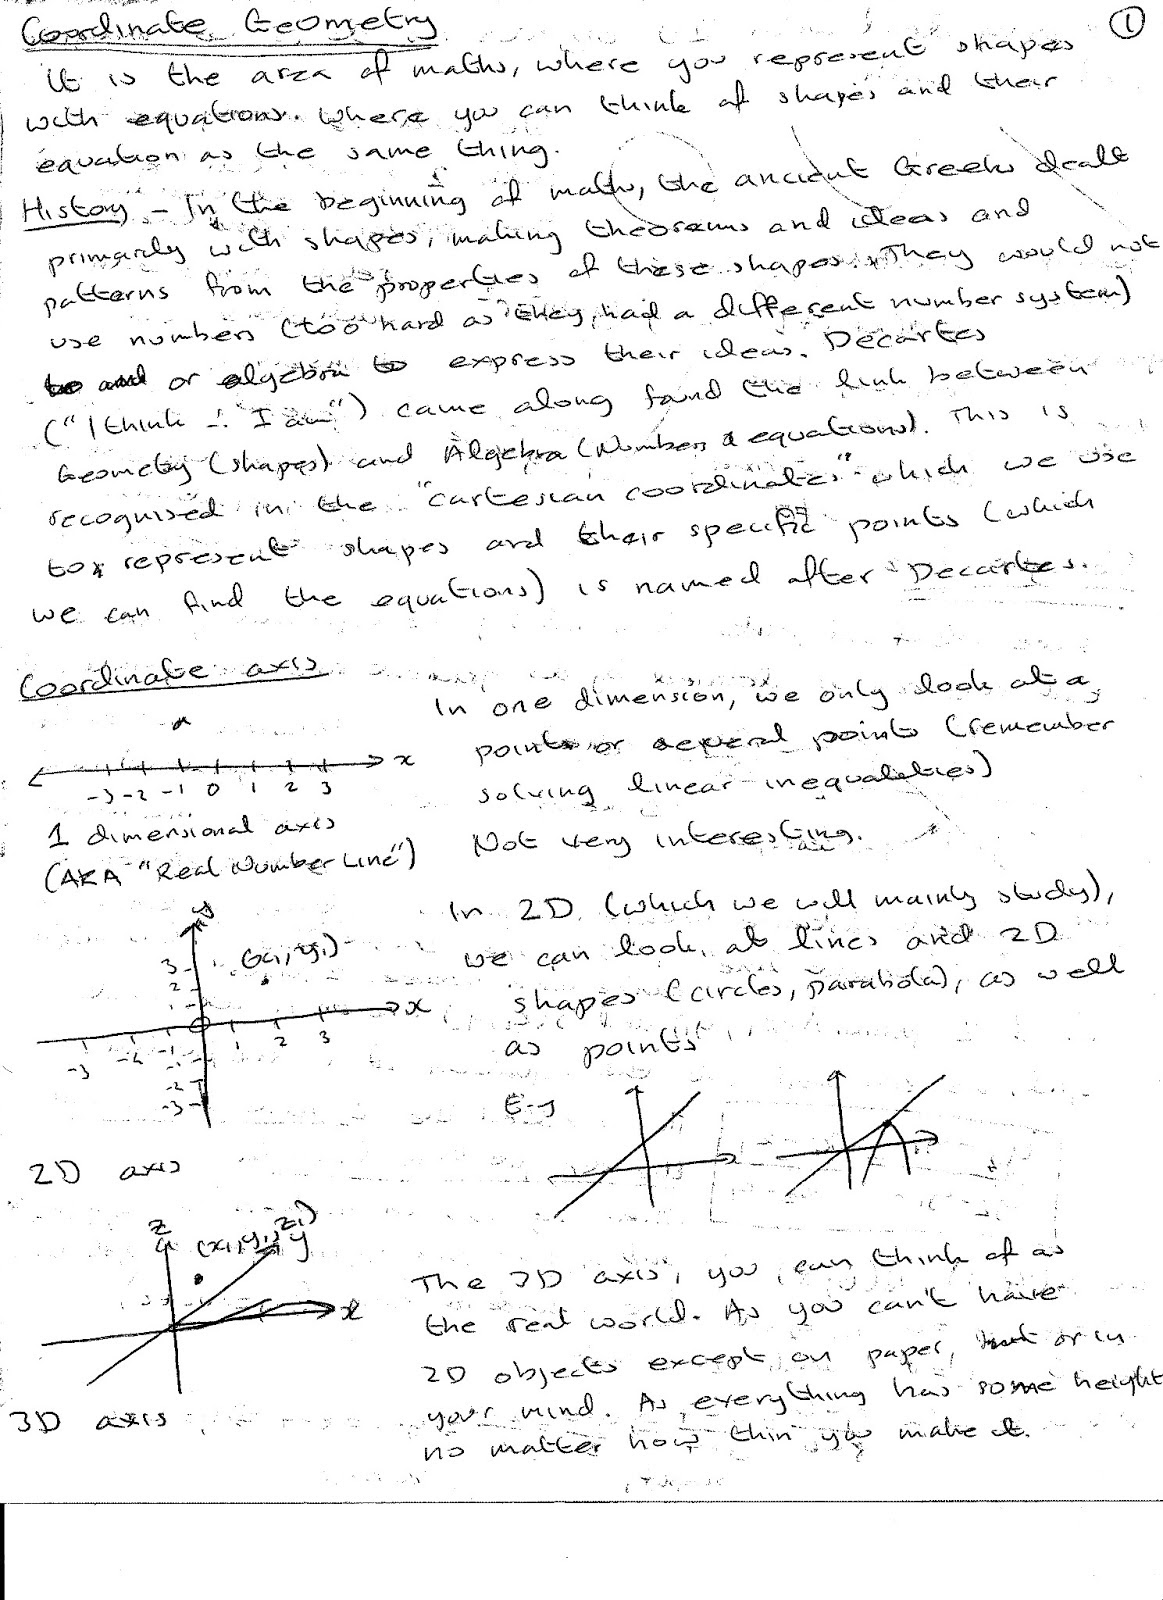 Coordinate Geometry
1
It is the area of maths, where you represent shapes
with equations. Where you can think of shapes and their
equation as the same thing.
History - In the beginning of maths, the ancient Greeks dealt
primarily with shapes, making theorems and ideas and
patterns from the properties of these shapes. They would not
use numbers (too hard as they had a different number system)
or algebra to express their ideas. Decartes
("I think ∴ I am") came along found the link between
Geometry (shapes) and Algebra (Numbers & equations). This is
recognised in the "cartesian coordinates" which we use
to represent shapes and their specific points (which
we can find the equations) is named after Decartes.
Coordinate axis
In one dimension, we only look at a
points or several points (remember
solving linear inequalities)
Not very interesting.
x
-3 -2 -1 0 1 2 3
1 dimensional axis
(AKA "Real Number Line")
In 2D (which we will mainly study),
we can look at lines and 2D
shapes (circles, parabola), as well
as points
y
3
(x₁, y₁)
2
1
x
-3 -2 -1 1 2 3
-1
-2
-3
E-g
2D axis
z
(x₁, y₁, z₁)
y
x
3D axis
The 3D axis, you can think of as
the real world. As you can't have
2D objects except on paper, or in
your mind. As everything has some height
no matter how thin you make it.